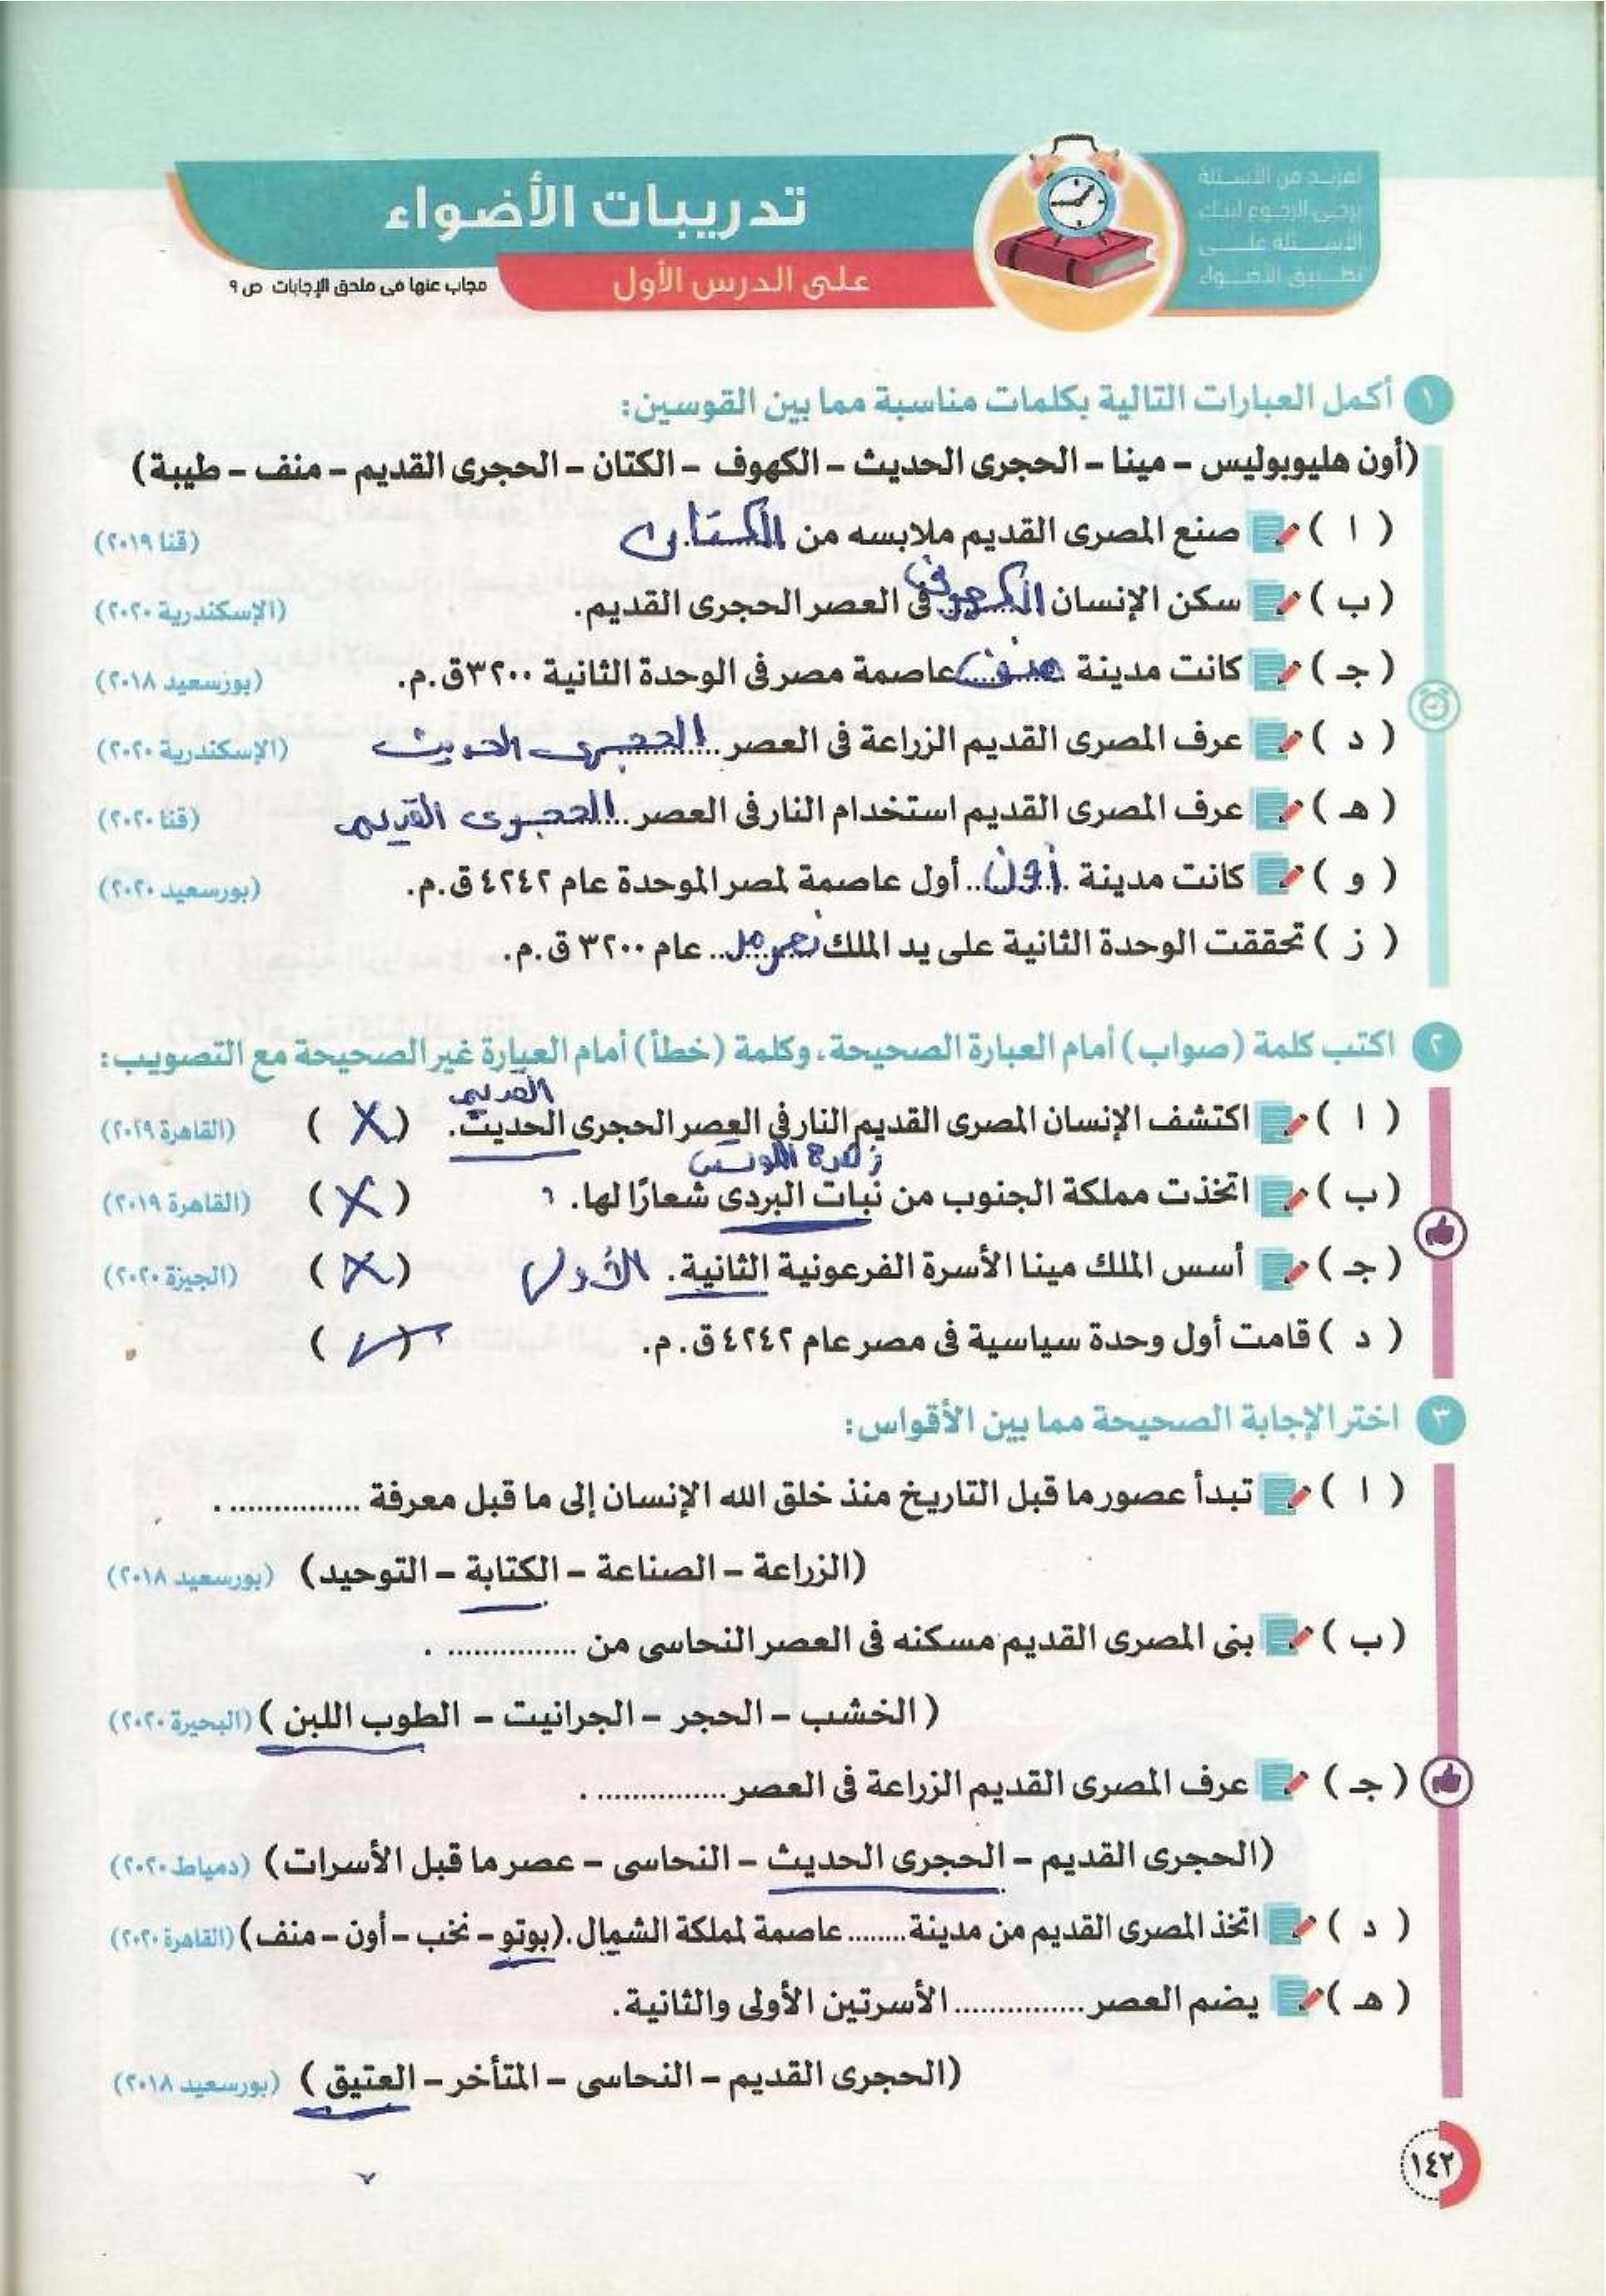 لمزيد من الأسئلة
يرجى الرجوع لبنك
الأسئلة على
تطبيق الأضواء
تدريبات الأضواء
على الدرس الأول
مجاب عنها فى ملحق الإجابات ص ٩
١ أكمل العبارات التالية بكلمات مناسبة مما بين القوسين:
(أون هليوبوليس – مينا – الحجرى الحديث – الكهوف – الكتان – الحجرى القديم – منف – طيبة)
( ا ) صنع المصرى القديم ملابسه من الكتان (قنا ٢٠١٩)
( ب ) سكن الإنسان الكهوف فى العصر الحجرى القديم. (الإسكندرية ٢٠٢٠)
( جـ ) كانت مدينة منف عاصمة مصر فى الوحدة الثانية ٣٢٠٠ق.م. (بورسعيد ٢٠١٨)
( د ) عرف المصرى القديم الزراعة فى العصر الحجرى الحديث (الإسكندرية ٢٠٢٠)
( هـ ) عرف المصرى القديم استخدام النار فى العصر الحجرى القديم (قنا ٢٠٢٠)
( و ) كانت مدينة أون أول عاصمة لمصر الموحدة عام ٤٢٤٢ق.م. (بورسعيد ٢٠٢٠)
( ز ) تحققت الوحدة الثانية على يد الملك نعرمر عام ٣٢٠٠ ق.م.
٢ اكتب كلمة (صواب) أمام العبارة الصحيحة، وكلمة (خطأ) أمام العبارة غير الصحيحة مع التصويب:
القديم
( ا ) اكتشف الإنسان المصرى القديم النار فى العصر الحجرى الحديث. ( X ) (القاهرة ٢٠١٩)
زهرة اللوتس
( ب ) اتخذت مملكة الجنوب من نبات البردى شعارًا لها. ( X ) (القاهرة ٢٠١٩)
( جـ ) أسس الملك مينا الأسرة الفرعونية الثانية. الأولى ( X ) (الجيزة ٢٠٢٠)
( د ) قامت أول وحدة سياسية فى مصر عام ٤٢٤٢ق. م. ( ✓ )
٣ اختر الإجابة الصحيحة مما بين الأقواس:
( ا ) تبدأ عصور ما قبل التاريخ منذ خلق الله الإنسان إلى ما قبل معرفة ............... .
(الزراعة – الصناعة – الكتابة – التوحيد) (بورسعيد ٢٠١٨)
( ب ) بنى المصرى القديم مسكنه فى العصر النحاسى من ............... .
( الخشب – الحجر – الجرانيت – الطوب اللبن ) (البحيرة ٢٠٢٠)
( جـ ) عرف المصرى القديم الزراعة فى العصر ............... .
(الحجرى القديم – الحجرى الحديث – النحاسى – عصر ما قبل الأسرات) (دمياط ٢٠٢٠)
( د ) اتخذ المصرى القديم من مدينة ........ عاصمة لمملكة الشمال. (بوتو – نخب – أون – منف) (القاهرة ٢٠٢٠)
( هـ ) يضم العصر ............... الأسرتين الأولى والثانية.
(الحجرى القديم – النحاسى – المتأخر – العتيق ) (بورسعيد ٢٠١٨)
١٤٢